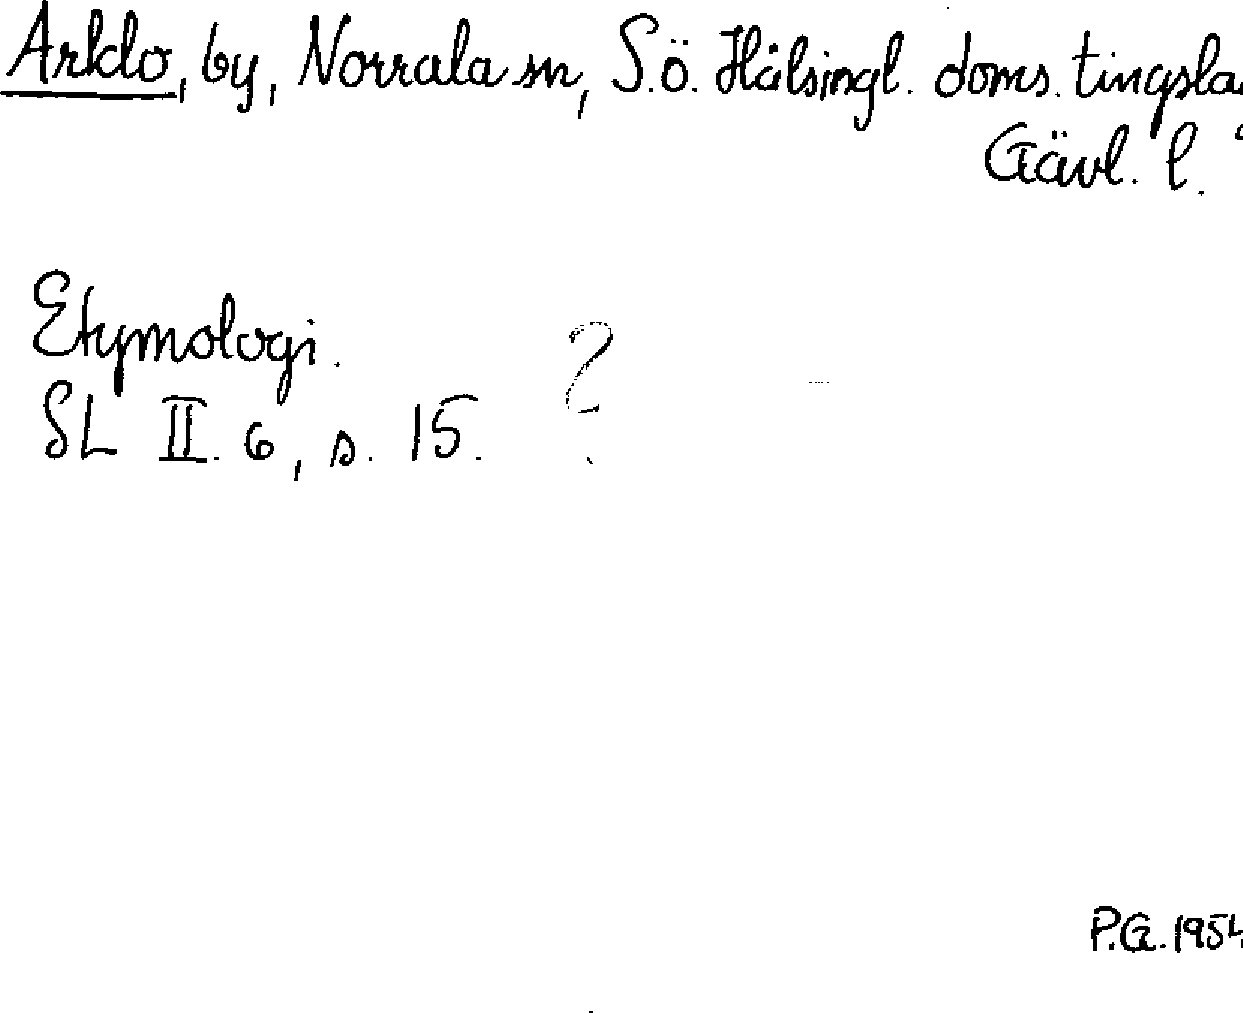 Arklo, by, Norrala sn, S.ö. Hälsingl. doms. tingsla
Gävl. l.
Etymologi. ?
SL II. 6, s. 15.
P.G. 1954